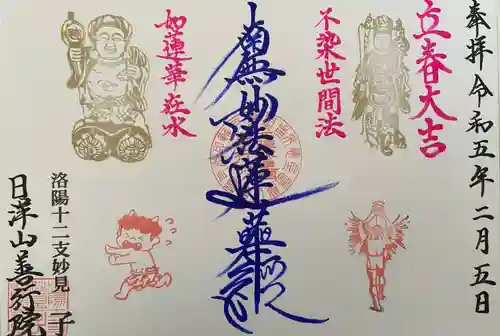 奉拝 令和五年二月五日
立春大吉
不染世間法
南無妙法蓮華経
如蓮華在水
洛陽十二支妙見 子
日洋山善行院